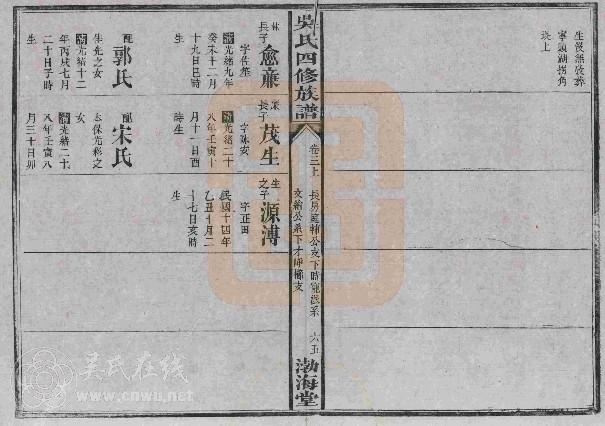 生俊無攷葬
寧鎮湖拐角
坟上
吳氏四修族譜
卷三上
長房庭輔公支下時寵派系
文繪公系下才
六五
渤海堂
林長子
愈兼
字作
清光緒九年
癸未十二月
十九日巳時
生
配
郭氏
生光之女
清光緒十二
年丙戌七月
二十日子時
生
兼長子
茂生
字咏安
清光緒二十
八年壬寅十
月十一日酉
時生
配
宋氏
志保光彩之
女
清光緒二十
八年壬寅八
月三十日卯
生之子
源溥
字正田
民國十四年
乙丑十月二
十七日亥時
生
吴氏在线
www.cnwu.net